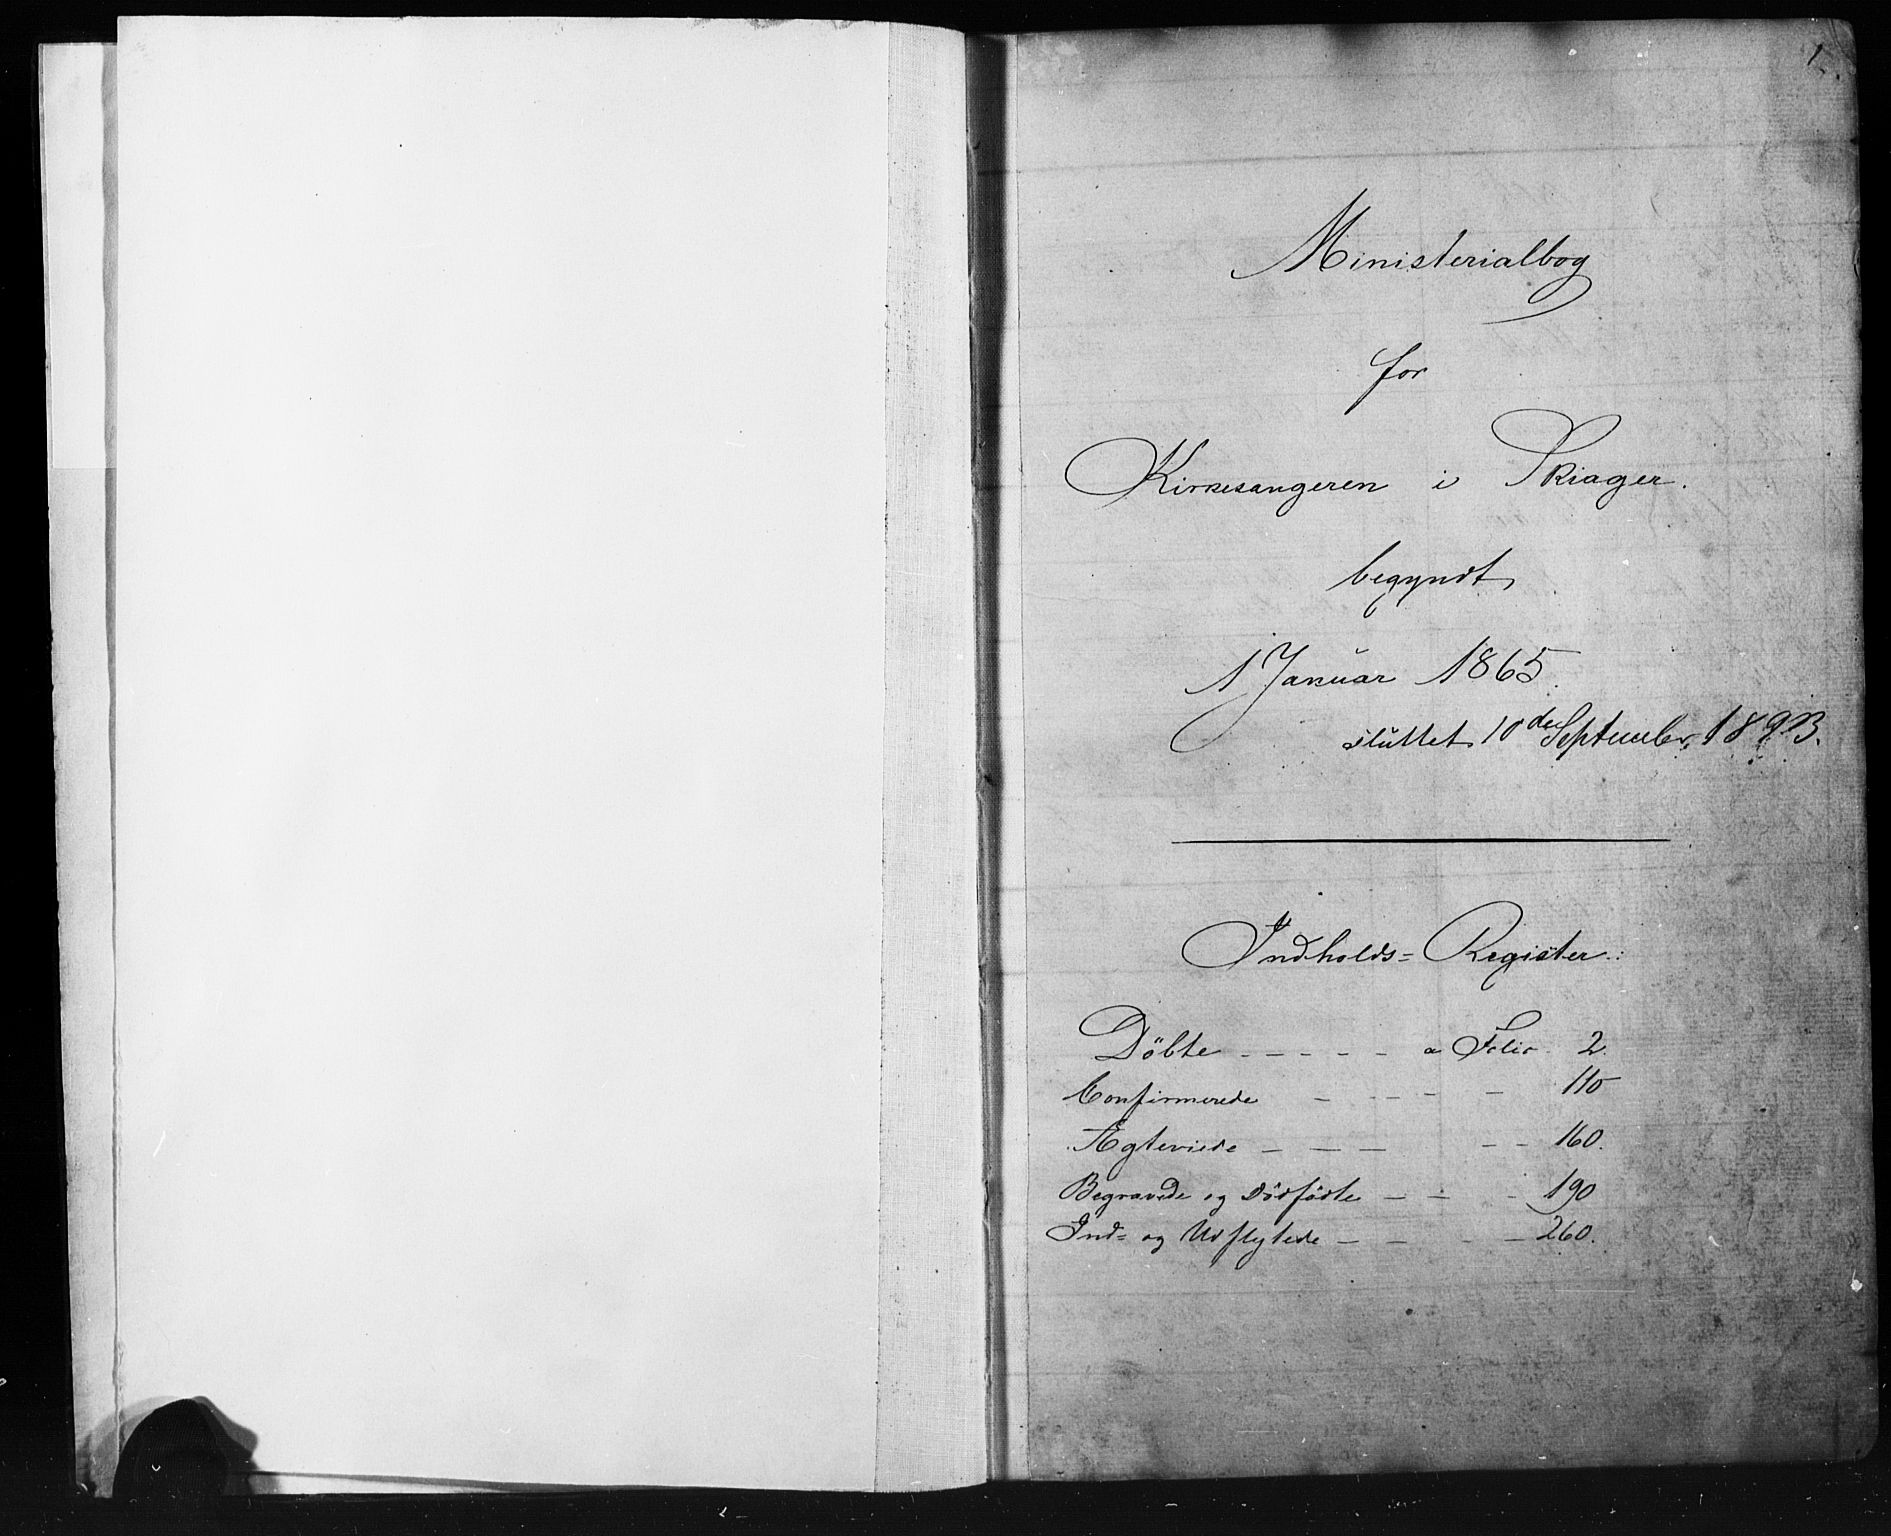 1.
Ministerialbog
for
Kirkesangeren i Skiager.
begyndt
1 Januar 1865.
sluttet 10de September, 1893.
Indholds= Register:
Döbte - - - - - a Folio 2.
Confirmerede - - - - - 110
Ægteviede - - - - - - 160.
Begravede og Dödfödte - - - 190
Ind= og Udflytede - - - - 260.